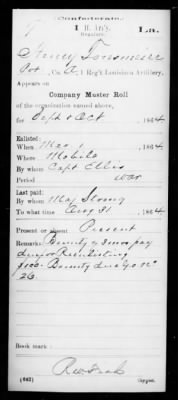 Confederate.
1 H. Art'y.
(Regulars)
La.
Henry
Pvt, Co. 1 Reg't Louisiana Artillery,
Appears on
Company Muster Roll
of the organization named above,
for Sept & Oct, 1864
Enlisted:
When
Where Mobile
By whom Capt Ellis
Period war
Last paid:
By whom Maj Strong
To what time Aug 31, 1864
Present or absent Present
Remarks: Bounty & 3 mos pay
due for Reenlisting
$100 Bounty due
26.
Book mark:
(642)
Copyist.